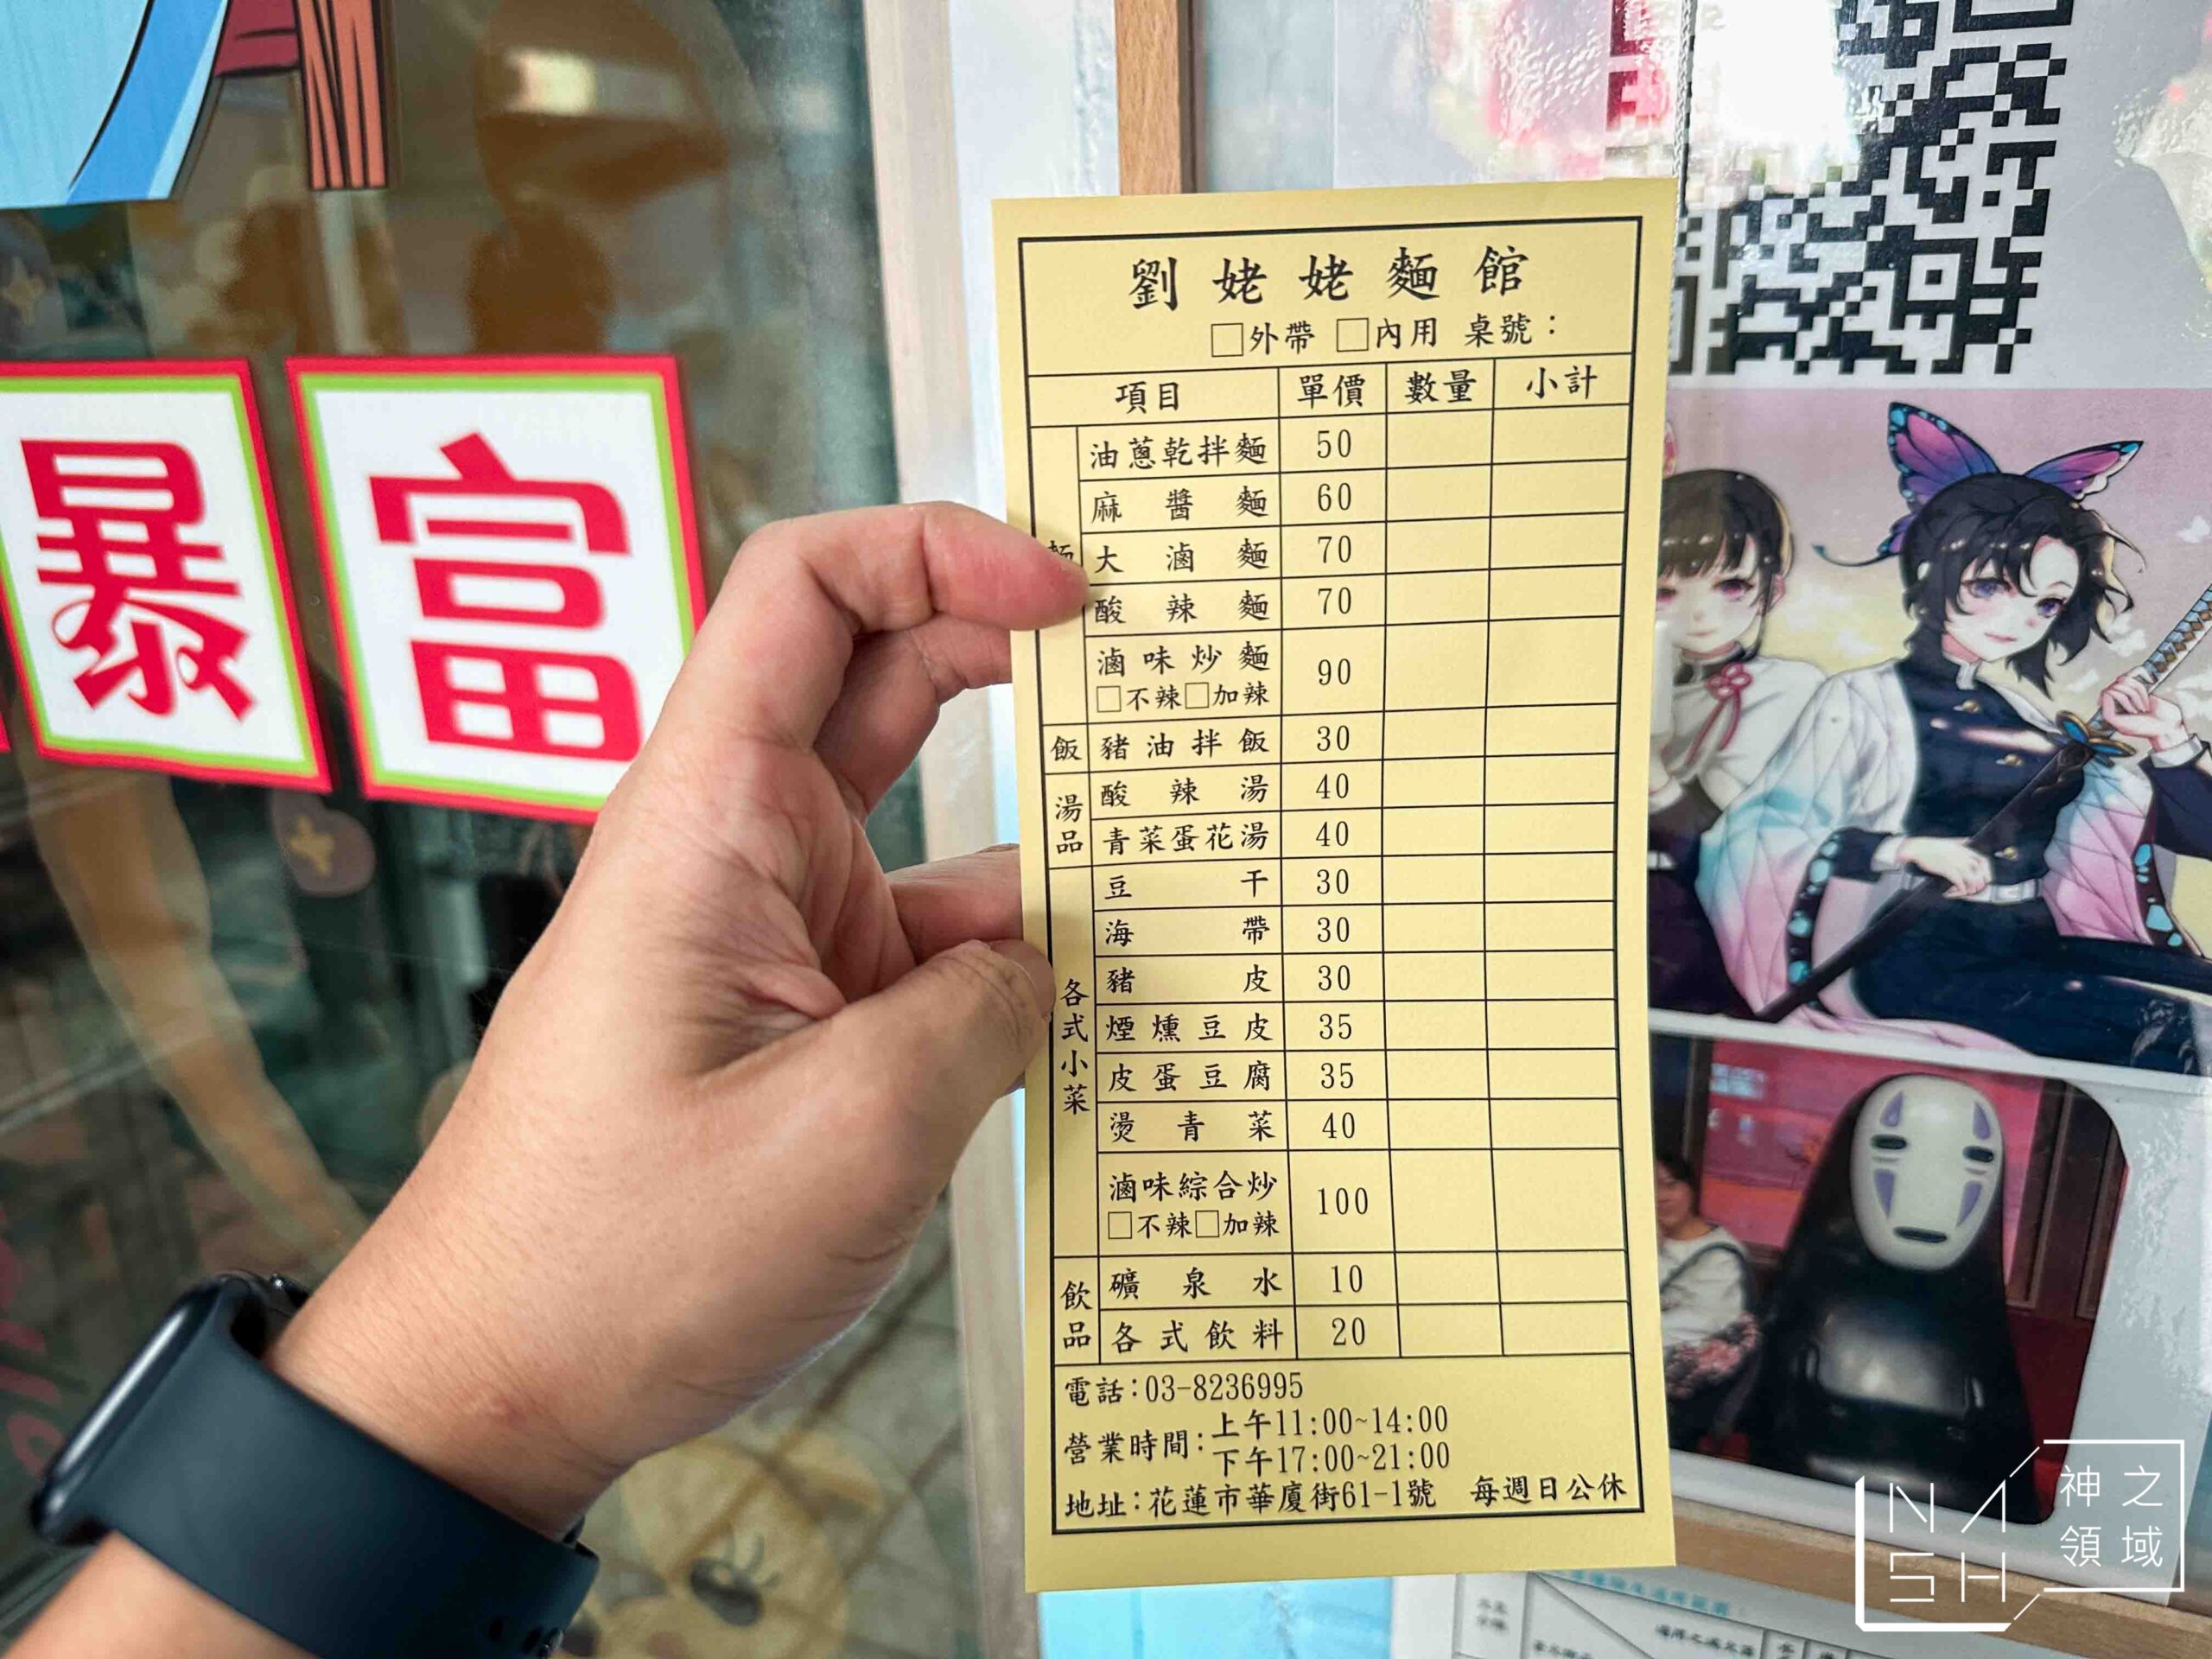 暴富
劉姥姥麵館
□外帶 □內用 桌號：
項目 單價 數量 小計
麵
油蔥乾拌麵 50
麻醬麵 60
大滷麵 70
酸辣麵 70
滷味炒麵 90
□不辣□加辣
飯 豬油拌飯 30
湯品
酸辣湯 40
青菜蛋花湯 40
各式小菜
豆干 30
海帶 30
豬皮 30
煙燻豆皮 35
皮蛋豆腐 35
燙青菜 40
滷味綜合炒 100
□不辣□加辣
飲品
礦泉水 10
各式飲料 20
電話：03-8236995
營業時間：上午11:00~14:00
下午17:00~21:00
地址：花蓮市華廈街61-1號 每週日公休
NASH
神之
領域